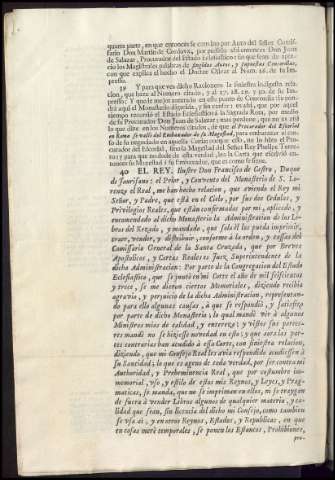 quarta parte, en que entonces se convino por Auto del Señor Comis-
sario Don Martin de Cordova, por pluma entonces Don Juan
de Salazar, Procurador del Estado Eclesiastico: lo que sera de apre-
cio los Magistrales palabras de fingidos Autos, y supuestas Concordias,
con que explica al hecho el Doctor Oscar al Num. 26. de su Im-
presso.
39 Y para que vea dicho Racionero la siniestra
que hace al Numero citado, y al 27. 28. 29. y 30. de su Im-
presso: Y que de mejor contexto en este punto de Concordia se pon-
drà aqui el Memorial
recurso del Estado Eclesiastico à la Sagrada Rota, por medio
de su Procurador Don Juan de Salazar; mas porque no es assi
lo que dize en los Numeros citados, de que el Procurador del Escorial
en Roma se valiò del Embaxador de su Magestad, para embarazar el cur-
so de su negociado en aquella Curia: porque esto, no lo hizo el Pro-
curador del Escorial, sino la Magestad del Señor Rey Phelipe Terze-
ro; y para que no dude de esta verdad, lea la Carta que escriviò en-
tonces su Magestad à su Embaxador, que es como se sigue.
40 EL REY: Ilustre Don Francisco de Castro, Duque
de Taurisano: el Prior, y Convento del Monasterio de S. Lo-
renzo el Real, me han hecho relacion, que aviendo el Rey mi
Señor, y Padre, que està en el Cielo, por sus dos Cedulas, y
Privilegios Reales, que estàn confirmadas por mi, aplicado, y
encomendado al dicho Monasterio la Administracion de los Li-
bros del Rezado, y mandado, que solo èl los pueda imprimir,
traer, vender, y distribuir, conforme à la orden, y tassas del
Comissario General de la Santa Cruzada, que por Breves
Apostolicos, y Cartas Reales es Juez, Superintendente de la
dicha Administracion: Por parte de la Congregacion del Estado
Eclesiastico, que se juntò en mi Corte el año de mil seiscientos
y trece, se me dieron ciertos Memoriales, diziendo recibia
agravio, y perjuicio de la dicha Administracion, representan-
do para ello algunas causas, à que se respondiò, y satisfizo
por parte de dicho Monasterio, lo qual mandè vèr à algunos
Ministros mios de calidad, y entereza; y vistos sus parece-
res mandè no se hiziesse novedad en esto; y que aora las par-
tes contrarias han acudido à essa Corte, con siniestra relacion,
diziendo, que mi Consejo Real les avia respondido acudiessen à
su Santidad; lo que es ageno de toda verdad, por ser contra mi
Authoridad, y Preheminencia Real, que por costumbre im-
memorial, uso, y estilo de estos mis Reynos, y Leyes, y Prag-
maticas, se manda, que no se impriman en ellos, ni se traygan
de fuera à vender Libros algunos de qualquier materia, y ca-
lidad que sean, sin licencia del dicho mi Consejo, como tambien
se usa assi, y en otros Reynos, Estados, y Republicas, en que
en cosas meré temporales, se ponen los Estancos, Prohibiciones,
pro-